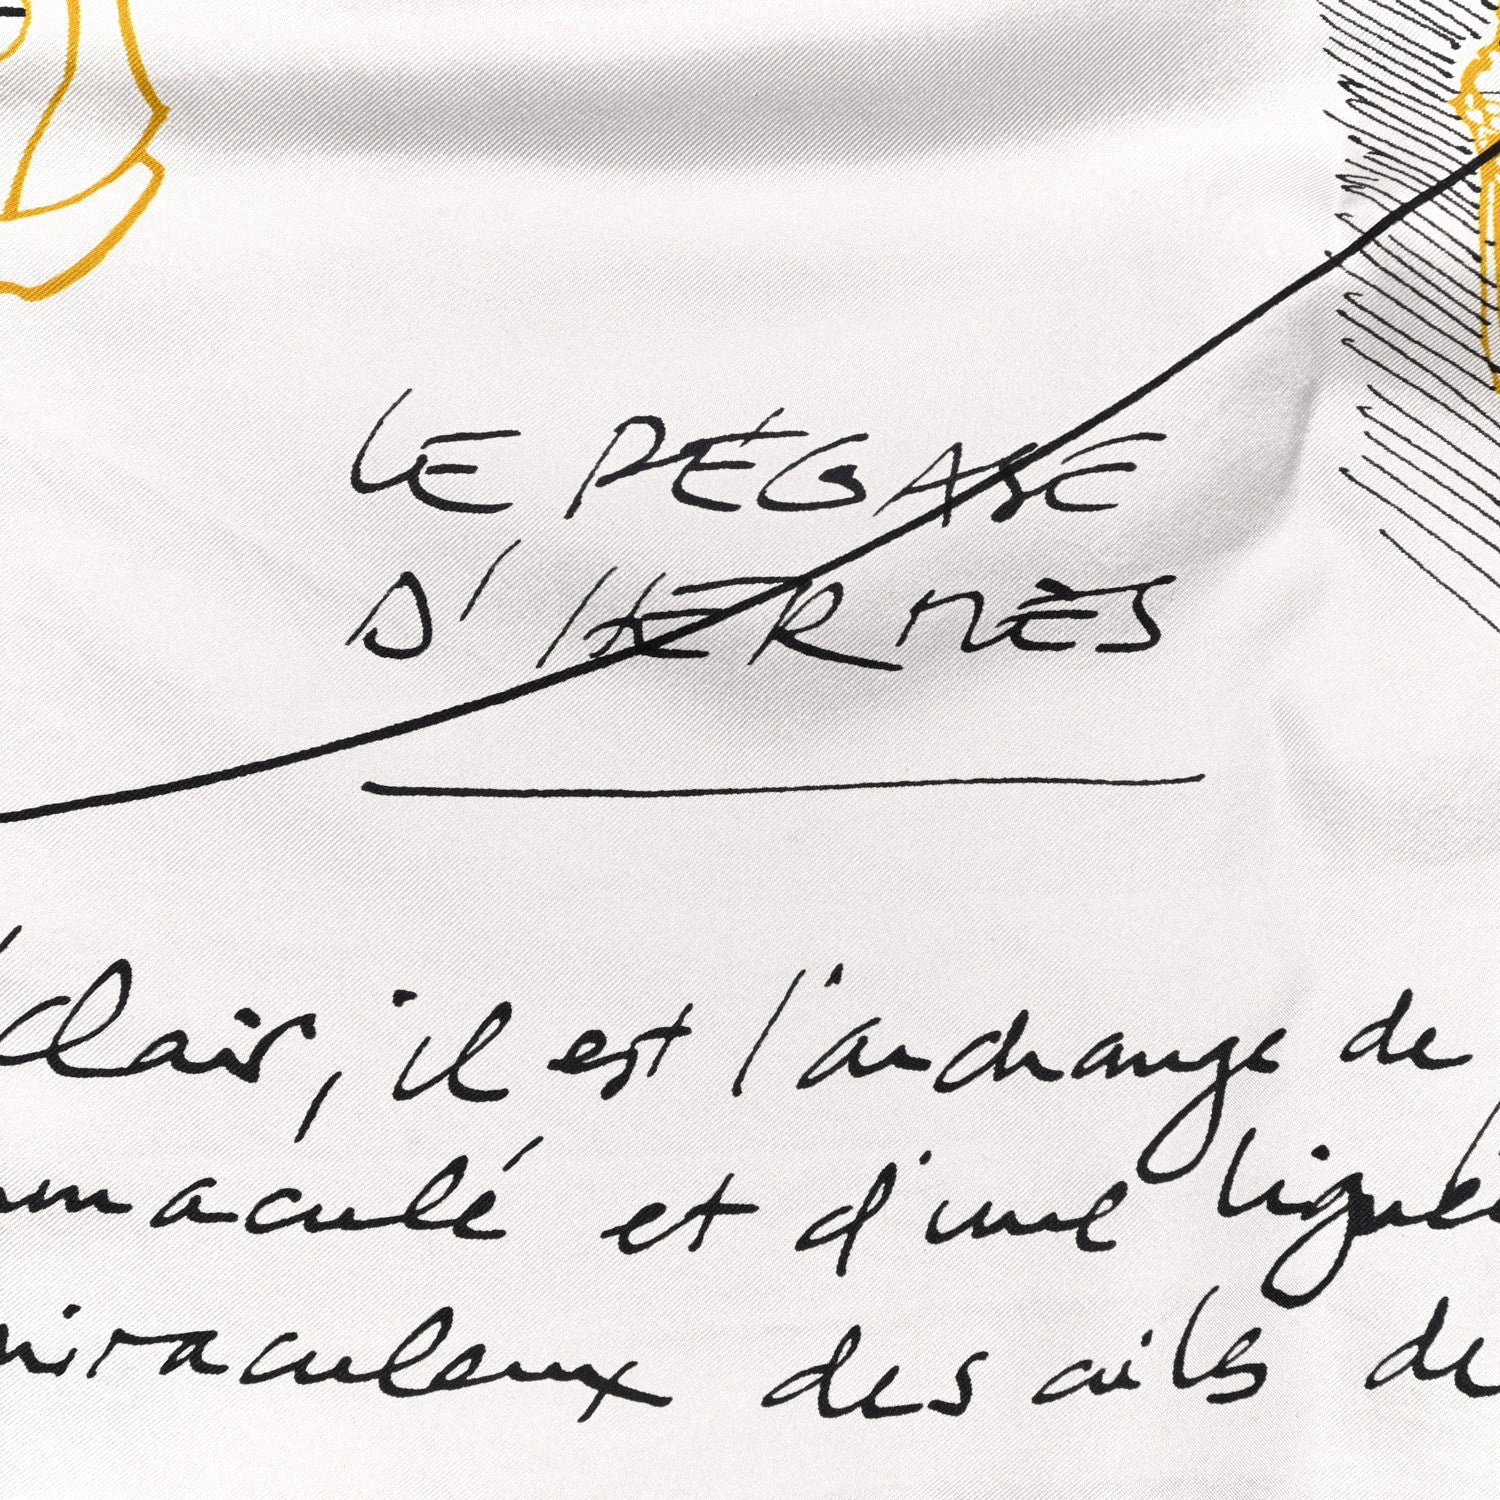 LE PÉGASE
D'HERMÈS
clair, il est l'archange de
maculé et d'une lignée
miraculeux des ails de